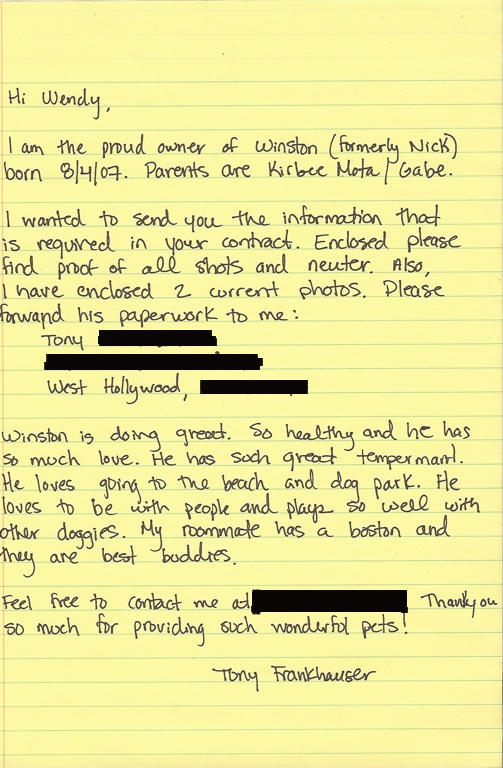 Hi Wendy,
I am the proud owner of Winston (formerly Nick)
born 8/4/07. Parents are Kirbee Mota / Gabe.
I wanted to send you the information that
is required in your contract. Enclosed please
find proof of all shots and neuter. Also,
I have enclosed 2 current photos. Please
forward his paperwork to me:
Tony
West Hollywood,
Winston is doing great. So healthy and he has
so much love. He has such great temperment.
He loves going to the beach and dog park. He
loves to be with people and plays so well with
other doggies. My roommate has a boston and
they are best buddies.
Feel free to contact me at Thankyou
so much for providing such wonderful pets!
Tony Frankhauser